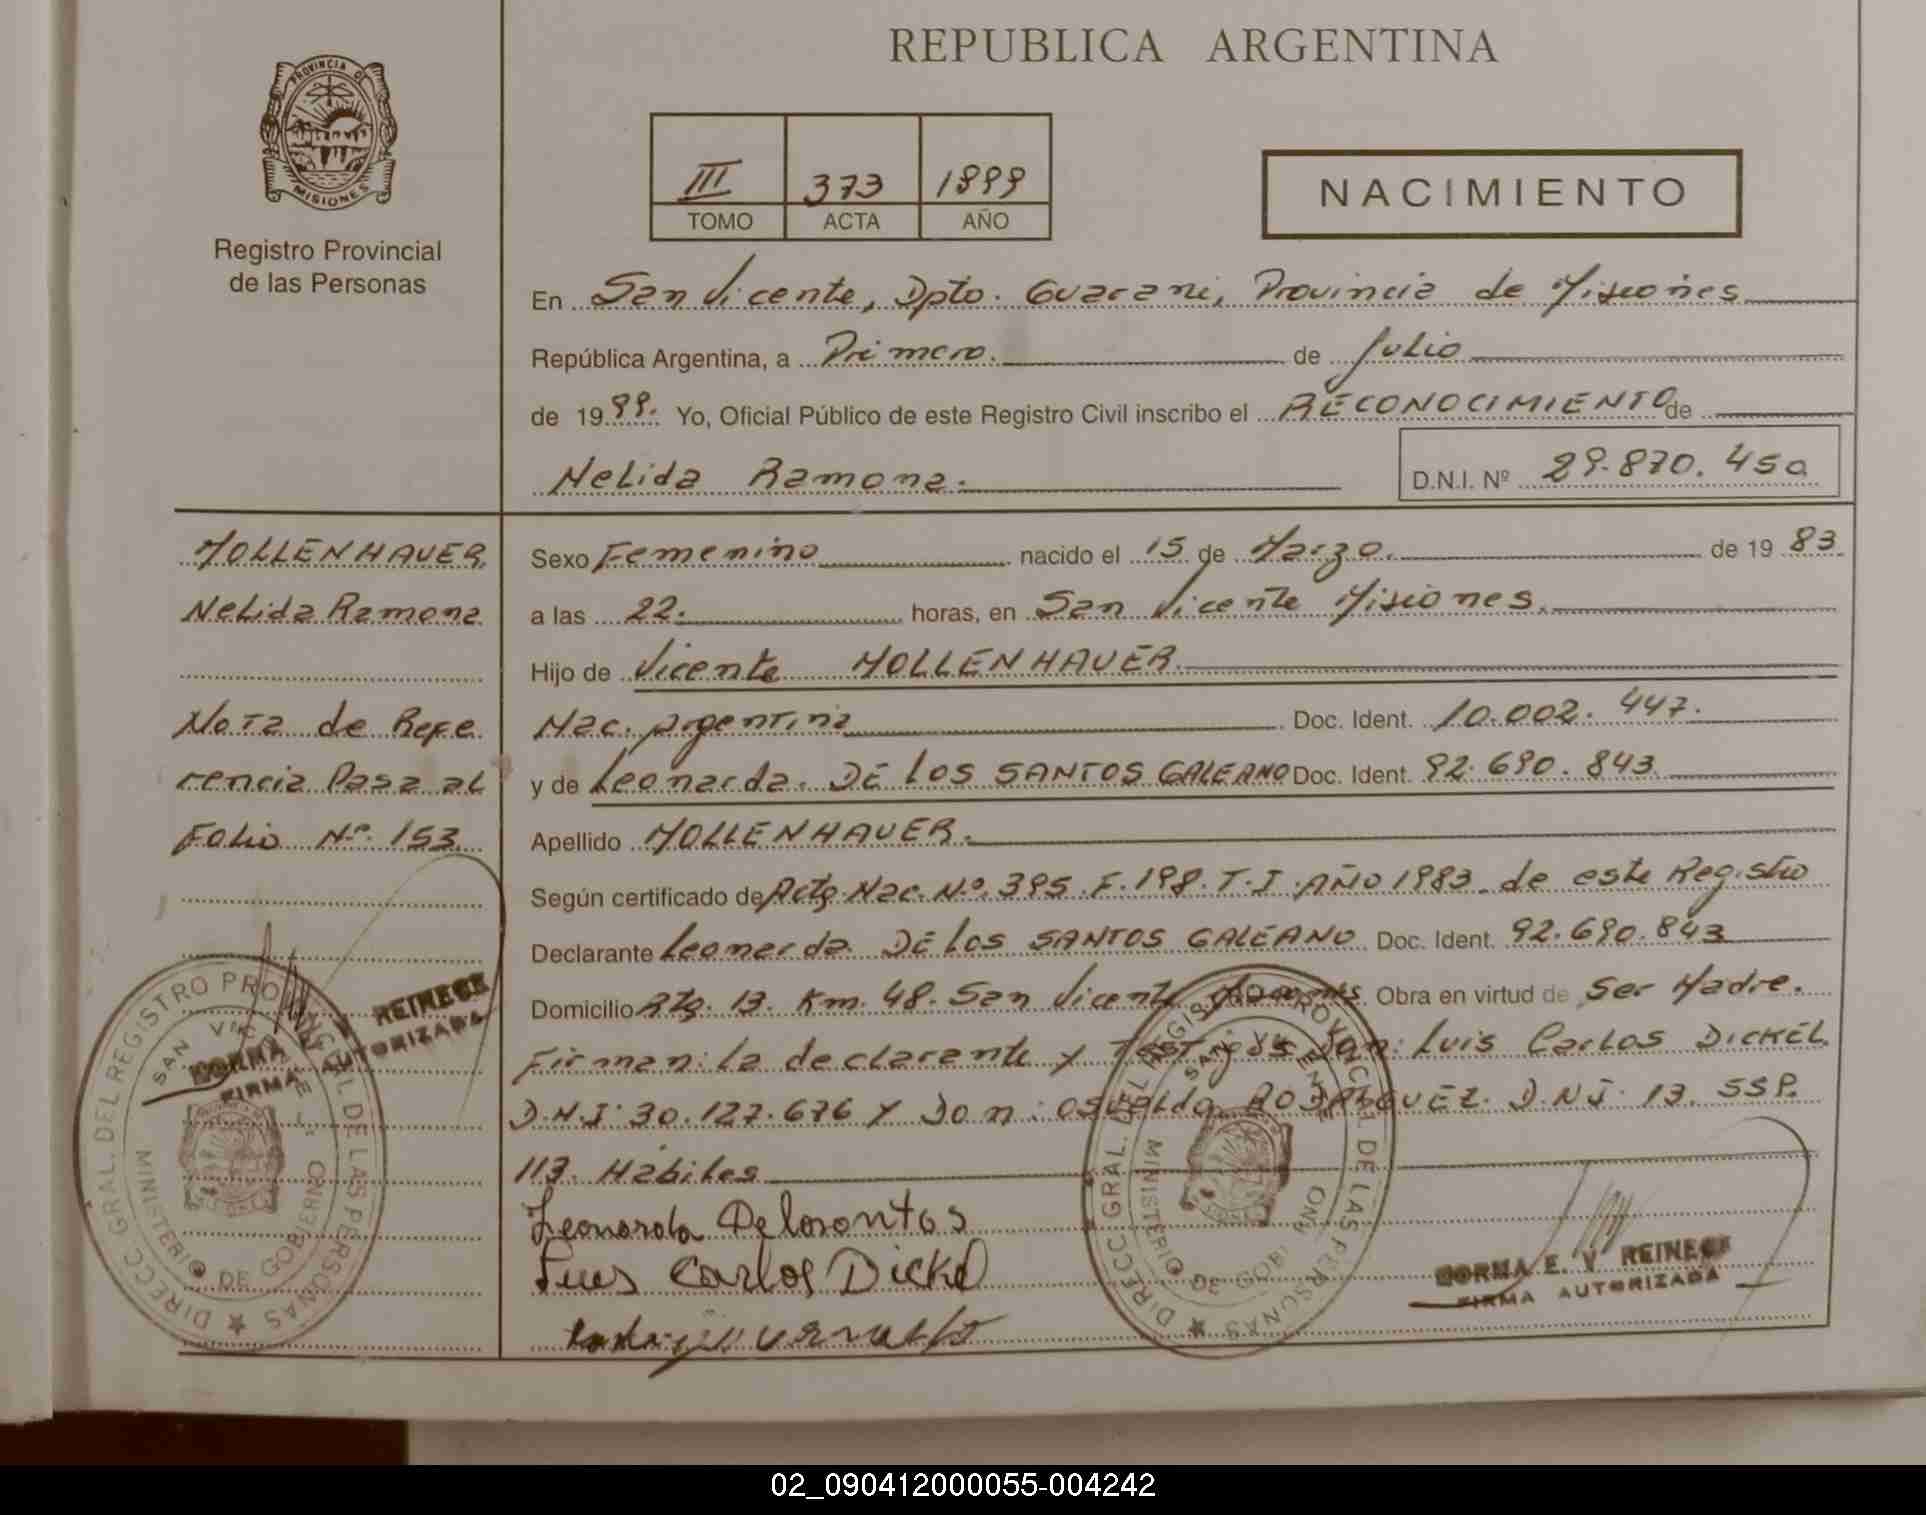 REPUBLICA ARGENTINA
PROVINCIA DE
MISIONES
Registro Provincial
de las Personas
III 373 1999
TOMO ACTA AÑO
NACIMIENTO
En San Vicente, Dpto. Guarani, Provincia de Misiones
República Argentina, a Primero. de Julio
de 1999. Yo, Oficial Público de este Registro Civil inscribo el RECONOCIMIENTO de
Nelida Ramona. D.N.I. Nº 29.870.450
MOLLENHAUER
Nelida Ramona
Nota de Refe
rencia Pasa al
Folio Nº. 153
Sexo Femenino nacido el 15 de Marzo. de 1983
a las 22. horas, en San Vicente Misiones.
Hijo de Vicente MOLLENHAUER.
Nac. Argentina Doc. Ident. 10.002.447.
y de Leonarda. DE LOS SANTOS GALEANO Doc. Ident. 92.690.843
Apellido MOLLENHAUER.
Según certificado de Acta Nac. Nº. 395. F. 198. T. I. AÑO 1983. de este Registro
Declarante Leonarda DE LOS SANTOS GALEANO Doc. Ident. 92.690.843
Domicilio Rta. 13. Km. 48. San Vicente Misiones. Obra en virtud de Ser Madre.
Firman: La declarante y Testigos Don: Luis Carlos DICKEL
D.N.I. 30.127.676 y Don: Osvaldo RODRIGUEZ. D.N.I. 13.558.
113. Hábiles
Leonarda Delosantos
Luis Carlos Dickel
NORMA E. V. REINECK
FIRMA AUTORIZADA
NORMA E. V. REINECK
FIRMA AUTORIZADA
DIRECC. GRAL. DEL REGISTRO PROVINCIAL DE LAS PERSONAS
SAN VICENTE
MINISTERIO DE GOBIERNO
DIRECC. GRAL. DEL REGISTRO PROVINCIAL DE LAS PERSONAS
SAN VICENTE
MINISTERIO DE GOBIERNO
02_090412000055-004242